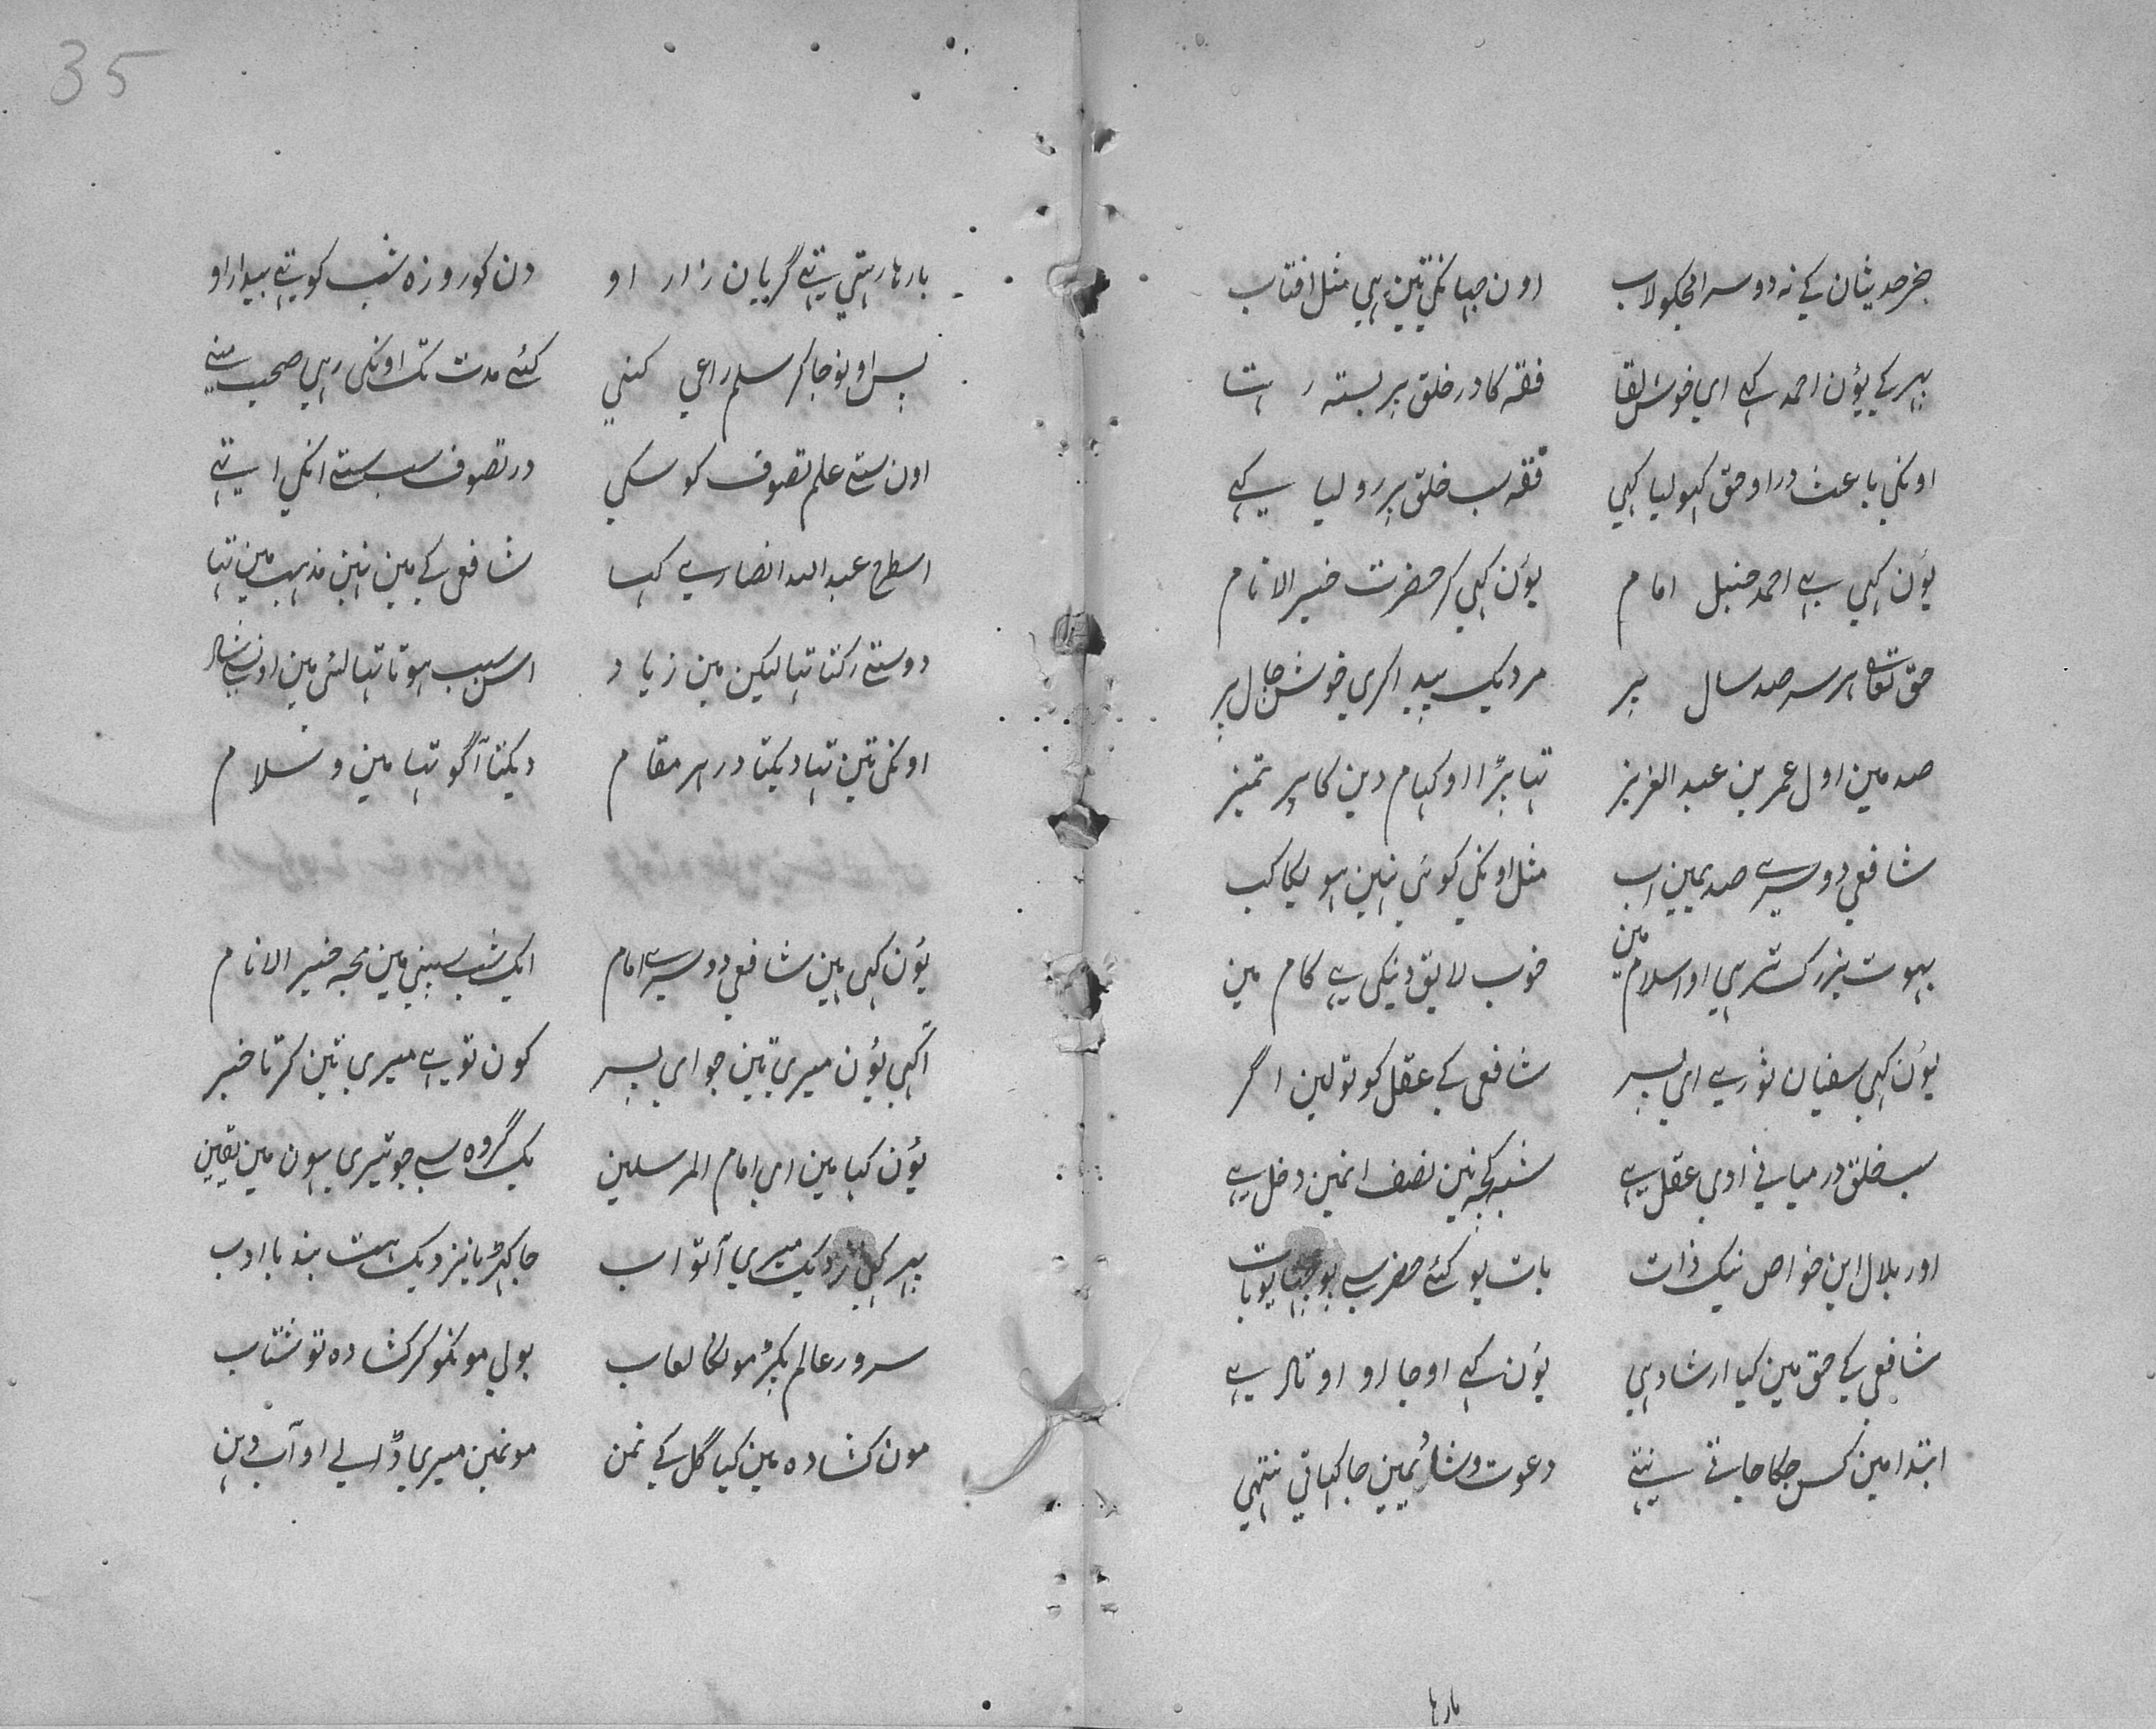 35
اون جہانکی تین ہی مثل افتاب
پہر کے یوُن احمد کہے ای خوش لقا فقہ کا در خلق پر بستہ رہتا
اونکی باعث در او حق کہولیا کہی فقہ سب خلق پر رو لیا کہے
یوُن کہی ہے احمد حنبل امام یوُن کہی کر حضرت خیر الانام
حق تعالی ہر سہ صد سال پر مرد یک پیدا کری خوش حال پر
صد مین اول عمر بن عبد العزیز تہا بڑا او کہام دین کا پر تمیز
شافعی دوسرے صدیمین اب مثل اونکی کوئی نہین ہویگا کب
بہوت بزرک تر ہی او اسلام مین خوب لایق دنیکی ہے کام مین
یوُن کہی سفیان ثوری ای پسر شافعی کے عقل کو تولین اگر
سب خلق درمیانی ادہی عقل ہے شبہ کچہ نین نصف انمین دخل ہے
اور بلال این خواص نیک ذات بات یو کئے حضر سے
شافعی کے حق مین کیا ارشاد ہی یوُن کہے او جا او اوتاد ہے
ابتدا مین کس جکا جاتے نتہے
بارہا
بارہا رہتی تہے گریان زار او دن کو روزہ شب کو تہے بیدار او
پس اونو جا کر سلم راعی کنی کئے مدت تک اونکی رہی صحبت منے
اون ستے علم تصوف کو سکی در تصوف سب ستے انکی اتہے
اسطرح عبد اللہ انصاری کہا شافعی کے مین نہین مذہب مین تہا
دوستے رکتا تہا لیکن مین زیاد
اونکی تین تہا دیکتا در ہر مقام دیکتا آگو تہا مین و سلام
یوُن کہی ہین شافعی دوسرے امام ایک شب سپنی مین مجہ خیر الانام
آ کہی یوُن میری تین جو ای پسر کون تو ہے میری تین کر تا خبر
یوُن کہا مین ای امام المرسلین یک گروہ سے جو تیری ہون مین یقین
پہر کہی نزدیک میری آ تو اب جا کہڑیا نزدیک ہت بند با ادب
سرور عالم پکڑ مونکا لعاب بولی مونکو کر کشادہ تو شتاب
مون کشادہ مین کیا گل کے نمن مونمین میری ڈالے او آب دہن